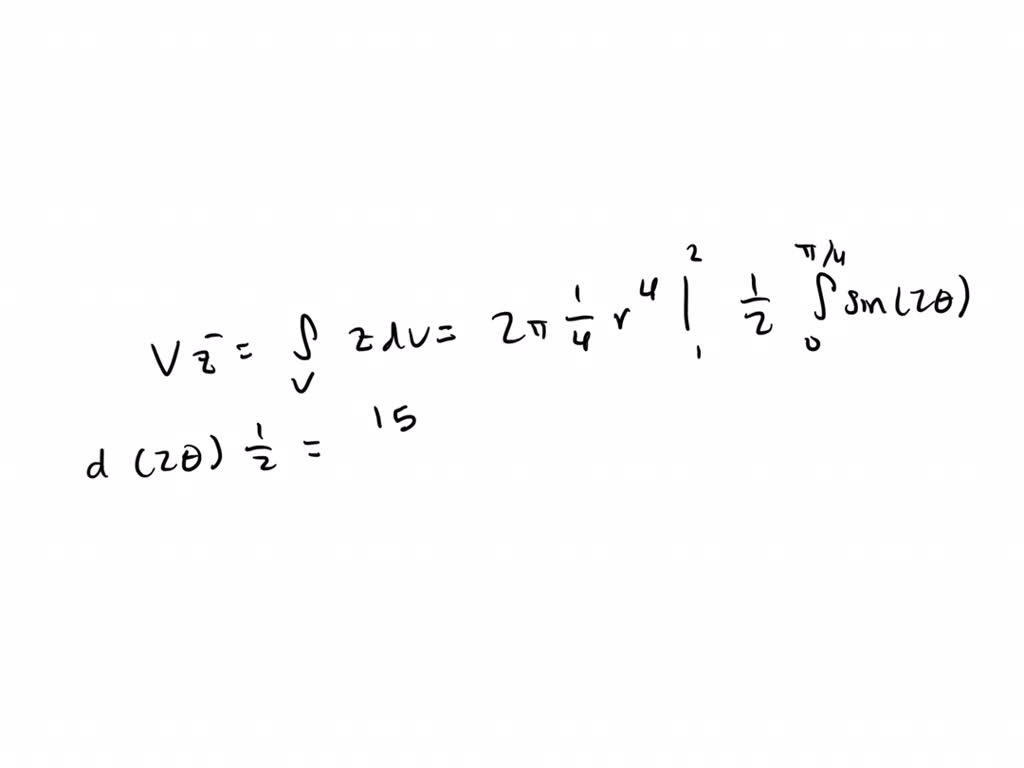 V z̄ = ∫_V z dv = 2π 1/4 r^4 |_1^2 1/2 ∫_0^{π/4} sin(2θ)
d (2θ) 1/2 = 15